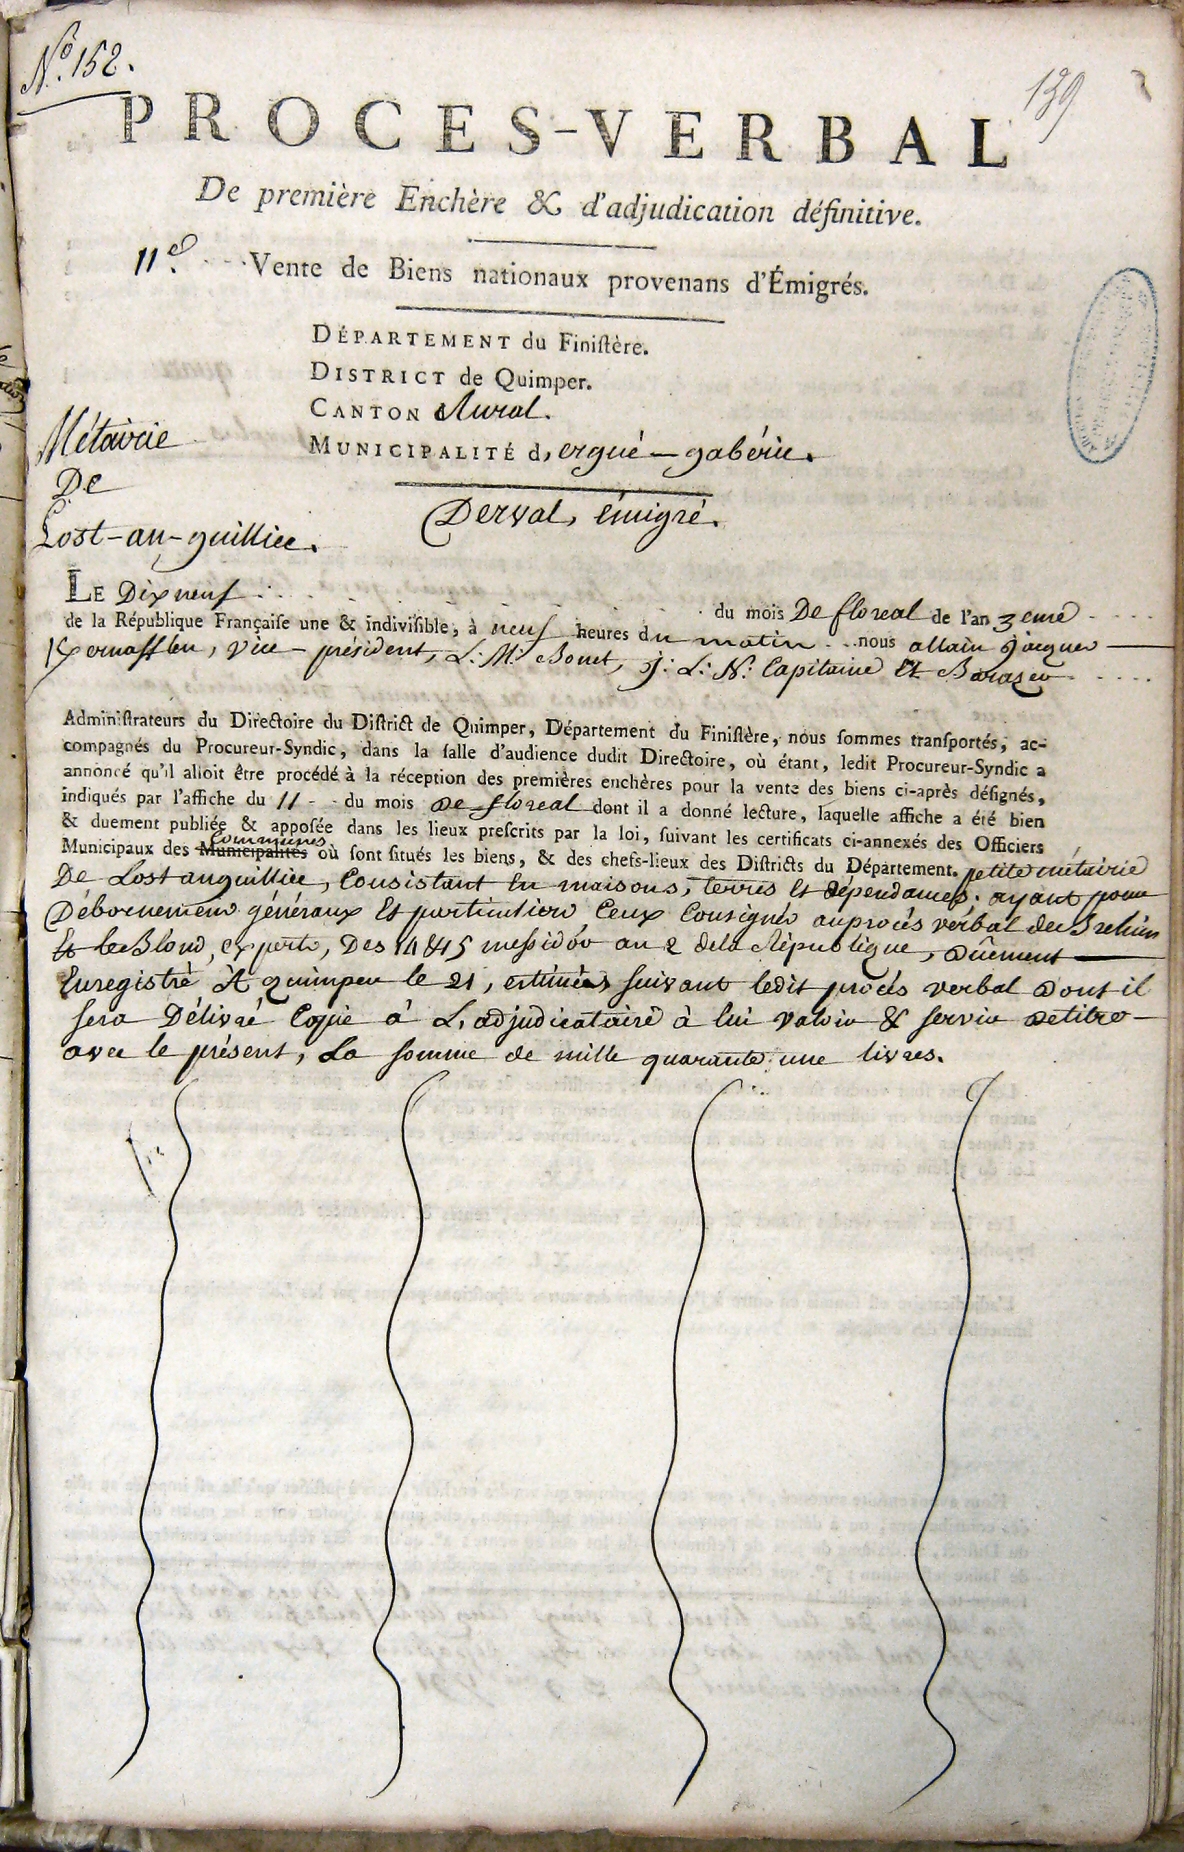 N.º 152.
139
PROCES-VERBAL
De première Enchère & d'adjudication définitive.
11.e Vente de Biens nationaux provenans d'Émigrés.
DÉPARTEMENT du Finistère.
DISTRICT de Quimper.
CANTON Rural.
MUNICIPALITÉ d, ergué-gabéric.
Métairie
De
Lost-an-guillec.
Derval, émigré.
LE Dix neuf du mois De floreal de l'an 3eme
de la République Française une & indivisible, à neuf heures du matin nous allain Jacques
Kernafflen, vice-président, L: M: Bonet, J: L: N: Capitaine Et
Administrateurs du Directoire du District de Quimper, Département du Finistère, nous sommes transportés, ac-
compagnés du Procureur-Syndic, dans la salle d'audience dudit Directoire, où étant, ledit Procureur-Syndic a
annoncé qu'il alloit être procédé à la réception des premières enchères pour la vente des biens ci-après désignés,
indiqués par l'affiche du 11 du mois De floreal dont il a donné lecture, laquelle affiche a été bien
& duement publiée & apposée dans les lieux prescrits par la loi, suivant les certificats ci-annexés des Officiers
communes
Municipaux des Municipalités où sont situés les biens, & des chefs-lieux des Districts du Département. petite métairie
De Lost anguillec, Consistant En maisons, terres Et dépendances, ayant pour
Débornemens généraux Et particuliers Ceux Consignés au procès verbal de
Et Le Blond, experts, Des 14 & 15 messidor an 2 dela République, Dûement
Enregistré A quimper le 21, estimées suivant ledit procès verbal Dont il
sera Délivré Copie à L'adjudicataire à lui valoir & servir De titre
avec le présent, La somme de mille quarante une livres.